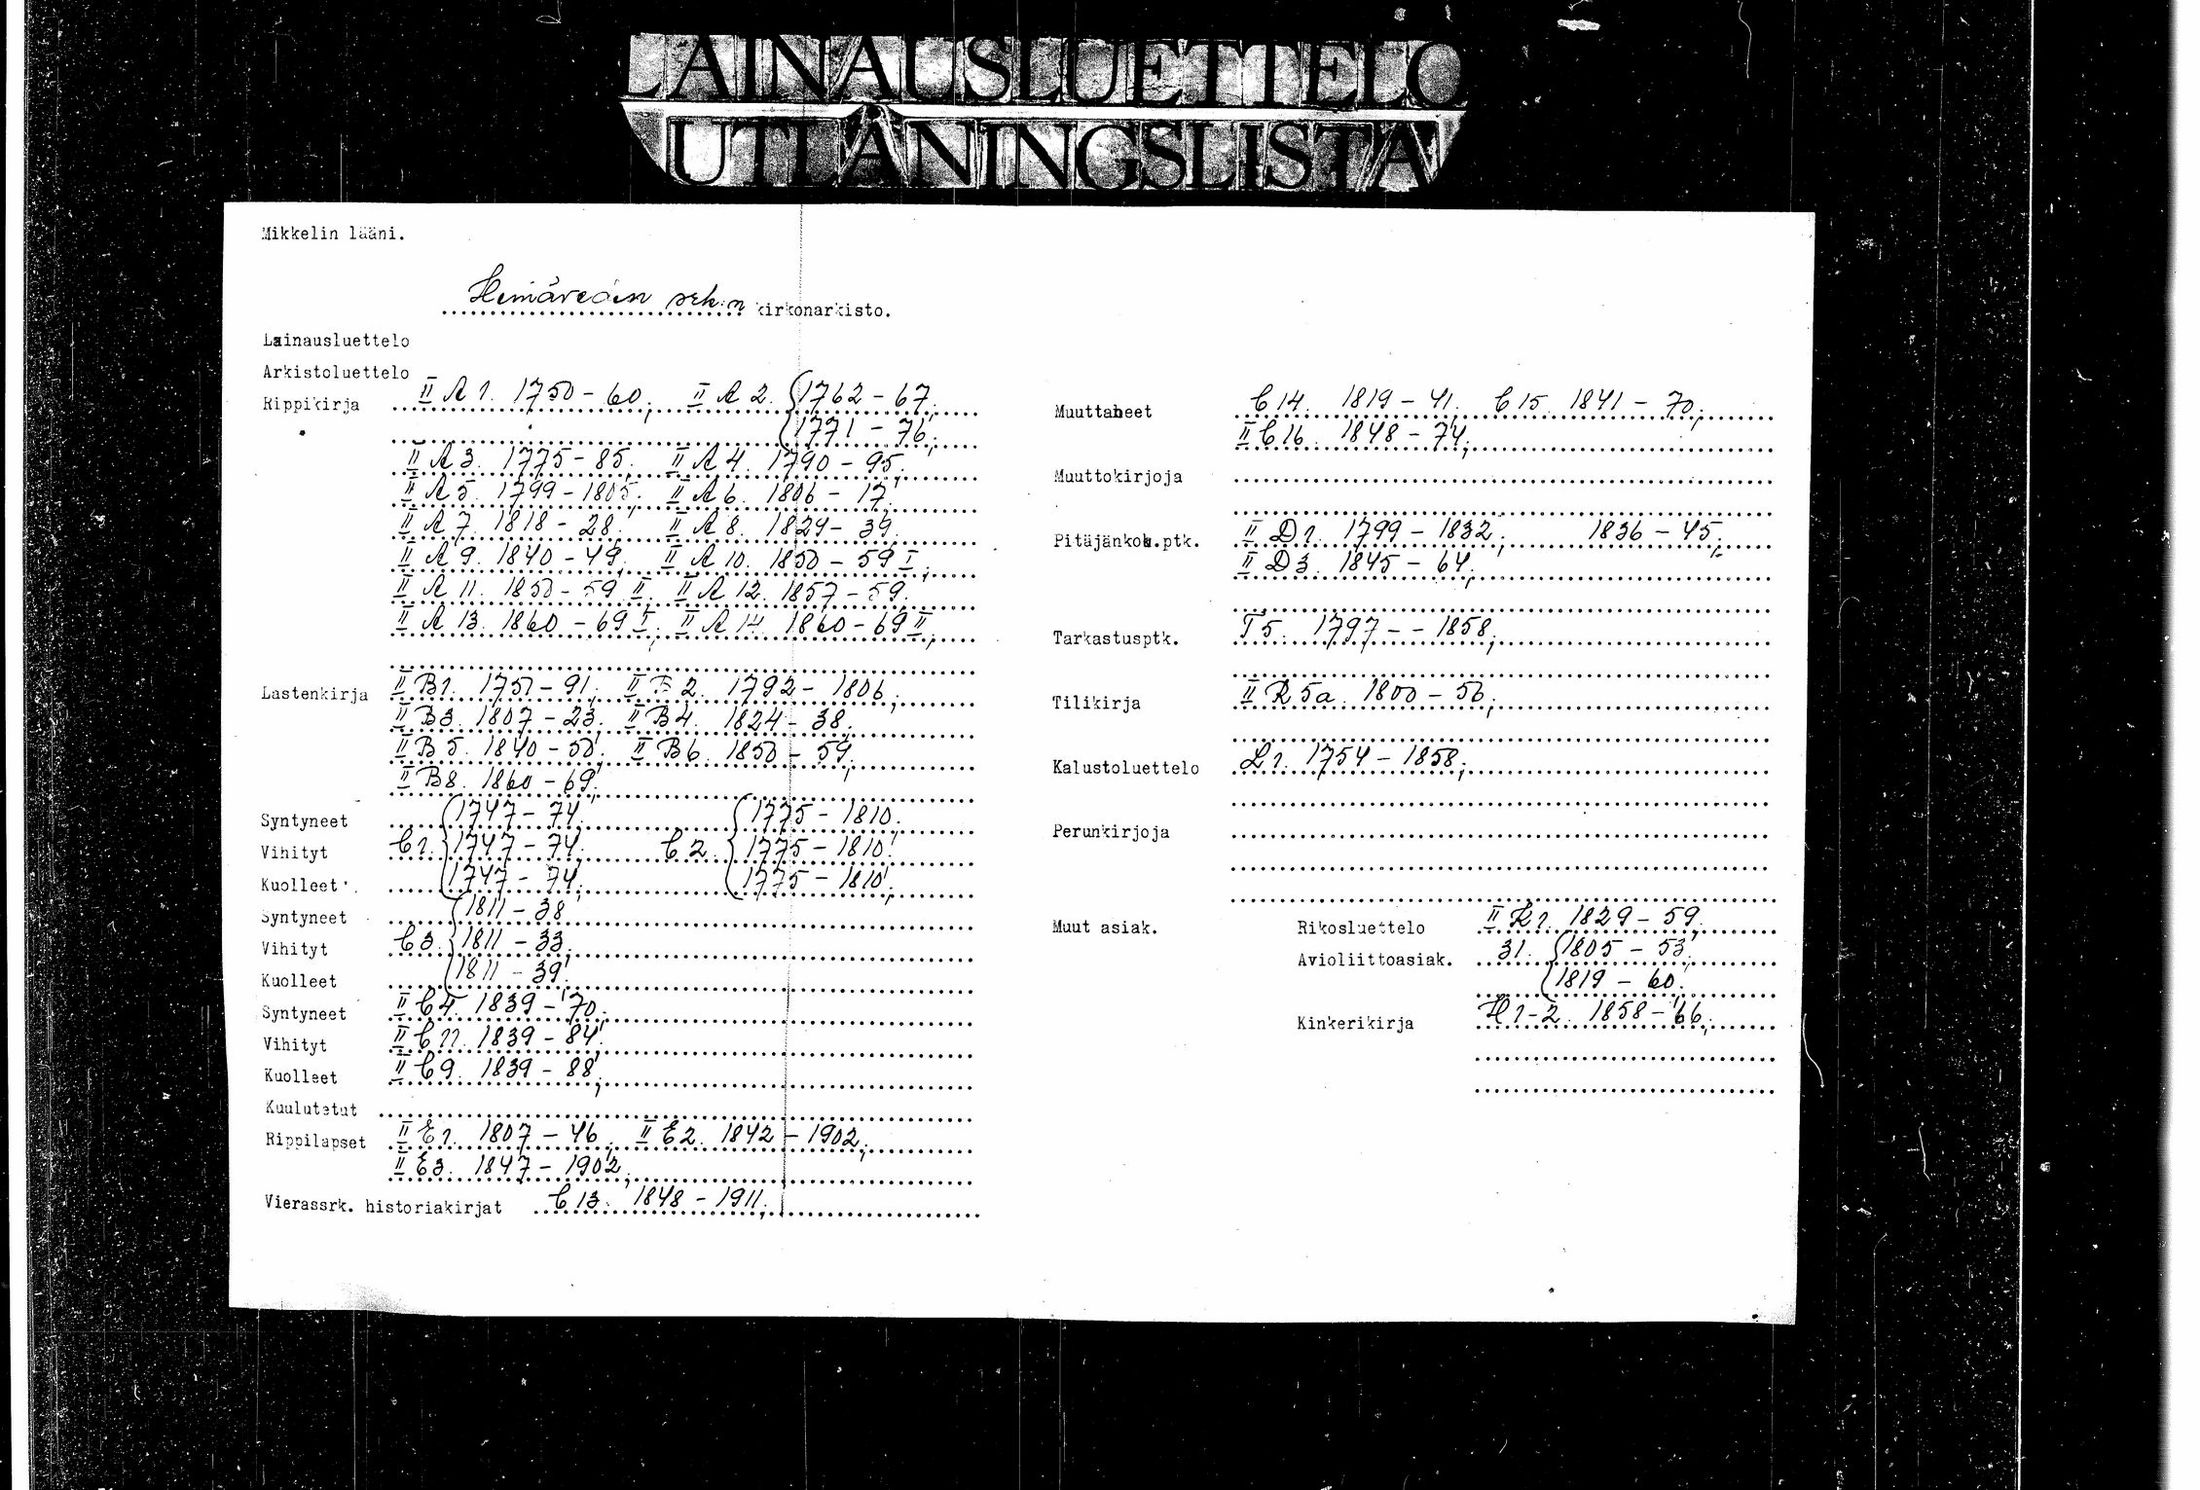 LAINAUSLUETTELO
UTLÅNINGSLISTA
Mikkelin lääni.
Heinäveden srk:n kirkonarkisto.
Lainausluettelo
Arkistoluettelo
Rippikirja II A 1. 1750-60; II A 2. 1762-67;
1771-76;
II A 3. 1775-85; II A 4. 1790-95;
II A 5. 1799-1805; II A 6. 1806-17;
II A 7. 1818-28; II A 8. 1829-39;
II A 9. 1840-49; II A 10. 1850-59 I;
II A 11. 1850-59 II; II A 12. 1857-59;
II A 13. 1860-69 I; II A 14. 1860-69 II;
Lastenkirja II B 1. 1751-91; II B 2. 1792-1806;
II B 3. 1807-23; II B 4. 1824-38;
II B 5. 1840-50; II B 6. 1850-59;
II B 8. 1860-69;
Syntyneet 1747-74; 1775-1810;
Vihityt C 1. 1747-74; C 2. 1775-1810;
Kuolleet 1747-74; 1775-1810;
Syntyneet 1811-38;
Vihityt C 3. 1811-33;
Kuolleet 1811-39;
Syntyneet II C 4. 1839-70;
Vihityt II C 11. 1839-84;
Kuolleet II C 9. 1839-88;
Kuulutetut
Rippilapset II E 1. 1807-46; II E 2. 1842-1902;
II E 3. 1847-1902;
Vierassrk. historiakirjat C 13. 1848-1911;
Muuttaneet C 14. 1819-41. C 15. 1841-70;
II C 16. 1848-74;
Muuttokirjoja
Pitäjänkok.ptk. II D 1. 1799-1832; 1836-45;
II D 3. 1845-64;
Tarkastusptk. T 5. 1797--1858;
Tilikirja II R 5a. 1800-56;
Kalustoluettelo L 1. 1754-1858;
Perunkirjoja
Muut asiak. Rikosluettelo II K 1. 1829-59;
Avioliittoasiak. 31. 1805-53;
1819-60;
Kinkerikirja H 1-2. 1858-66;